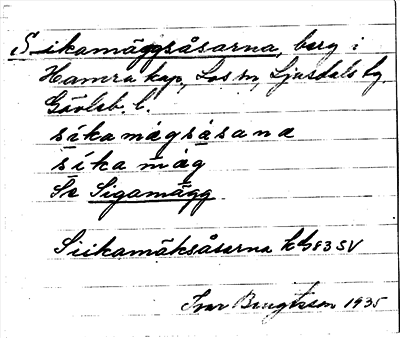 Siikamäggsåsarna, berg i
Hamra kap., Los sn, Ljusdals tg.
Gävleb. l.
síkamägsåsana
síka mäg
Se Sigamägg.
Siikamäksåsarna hS83SV
Ivar Bengtsson 1935